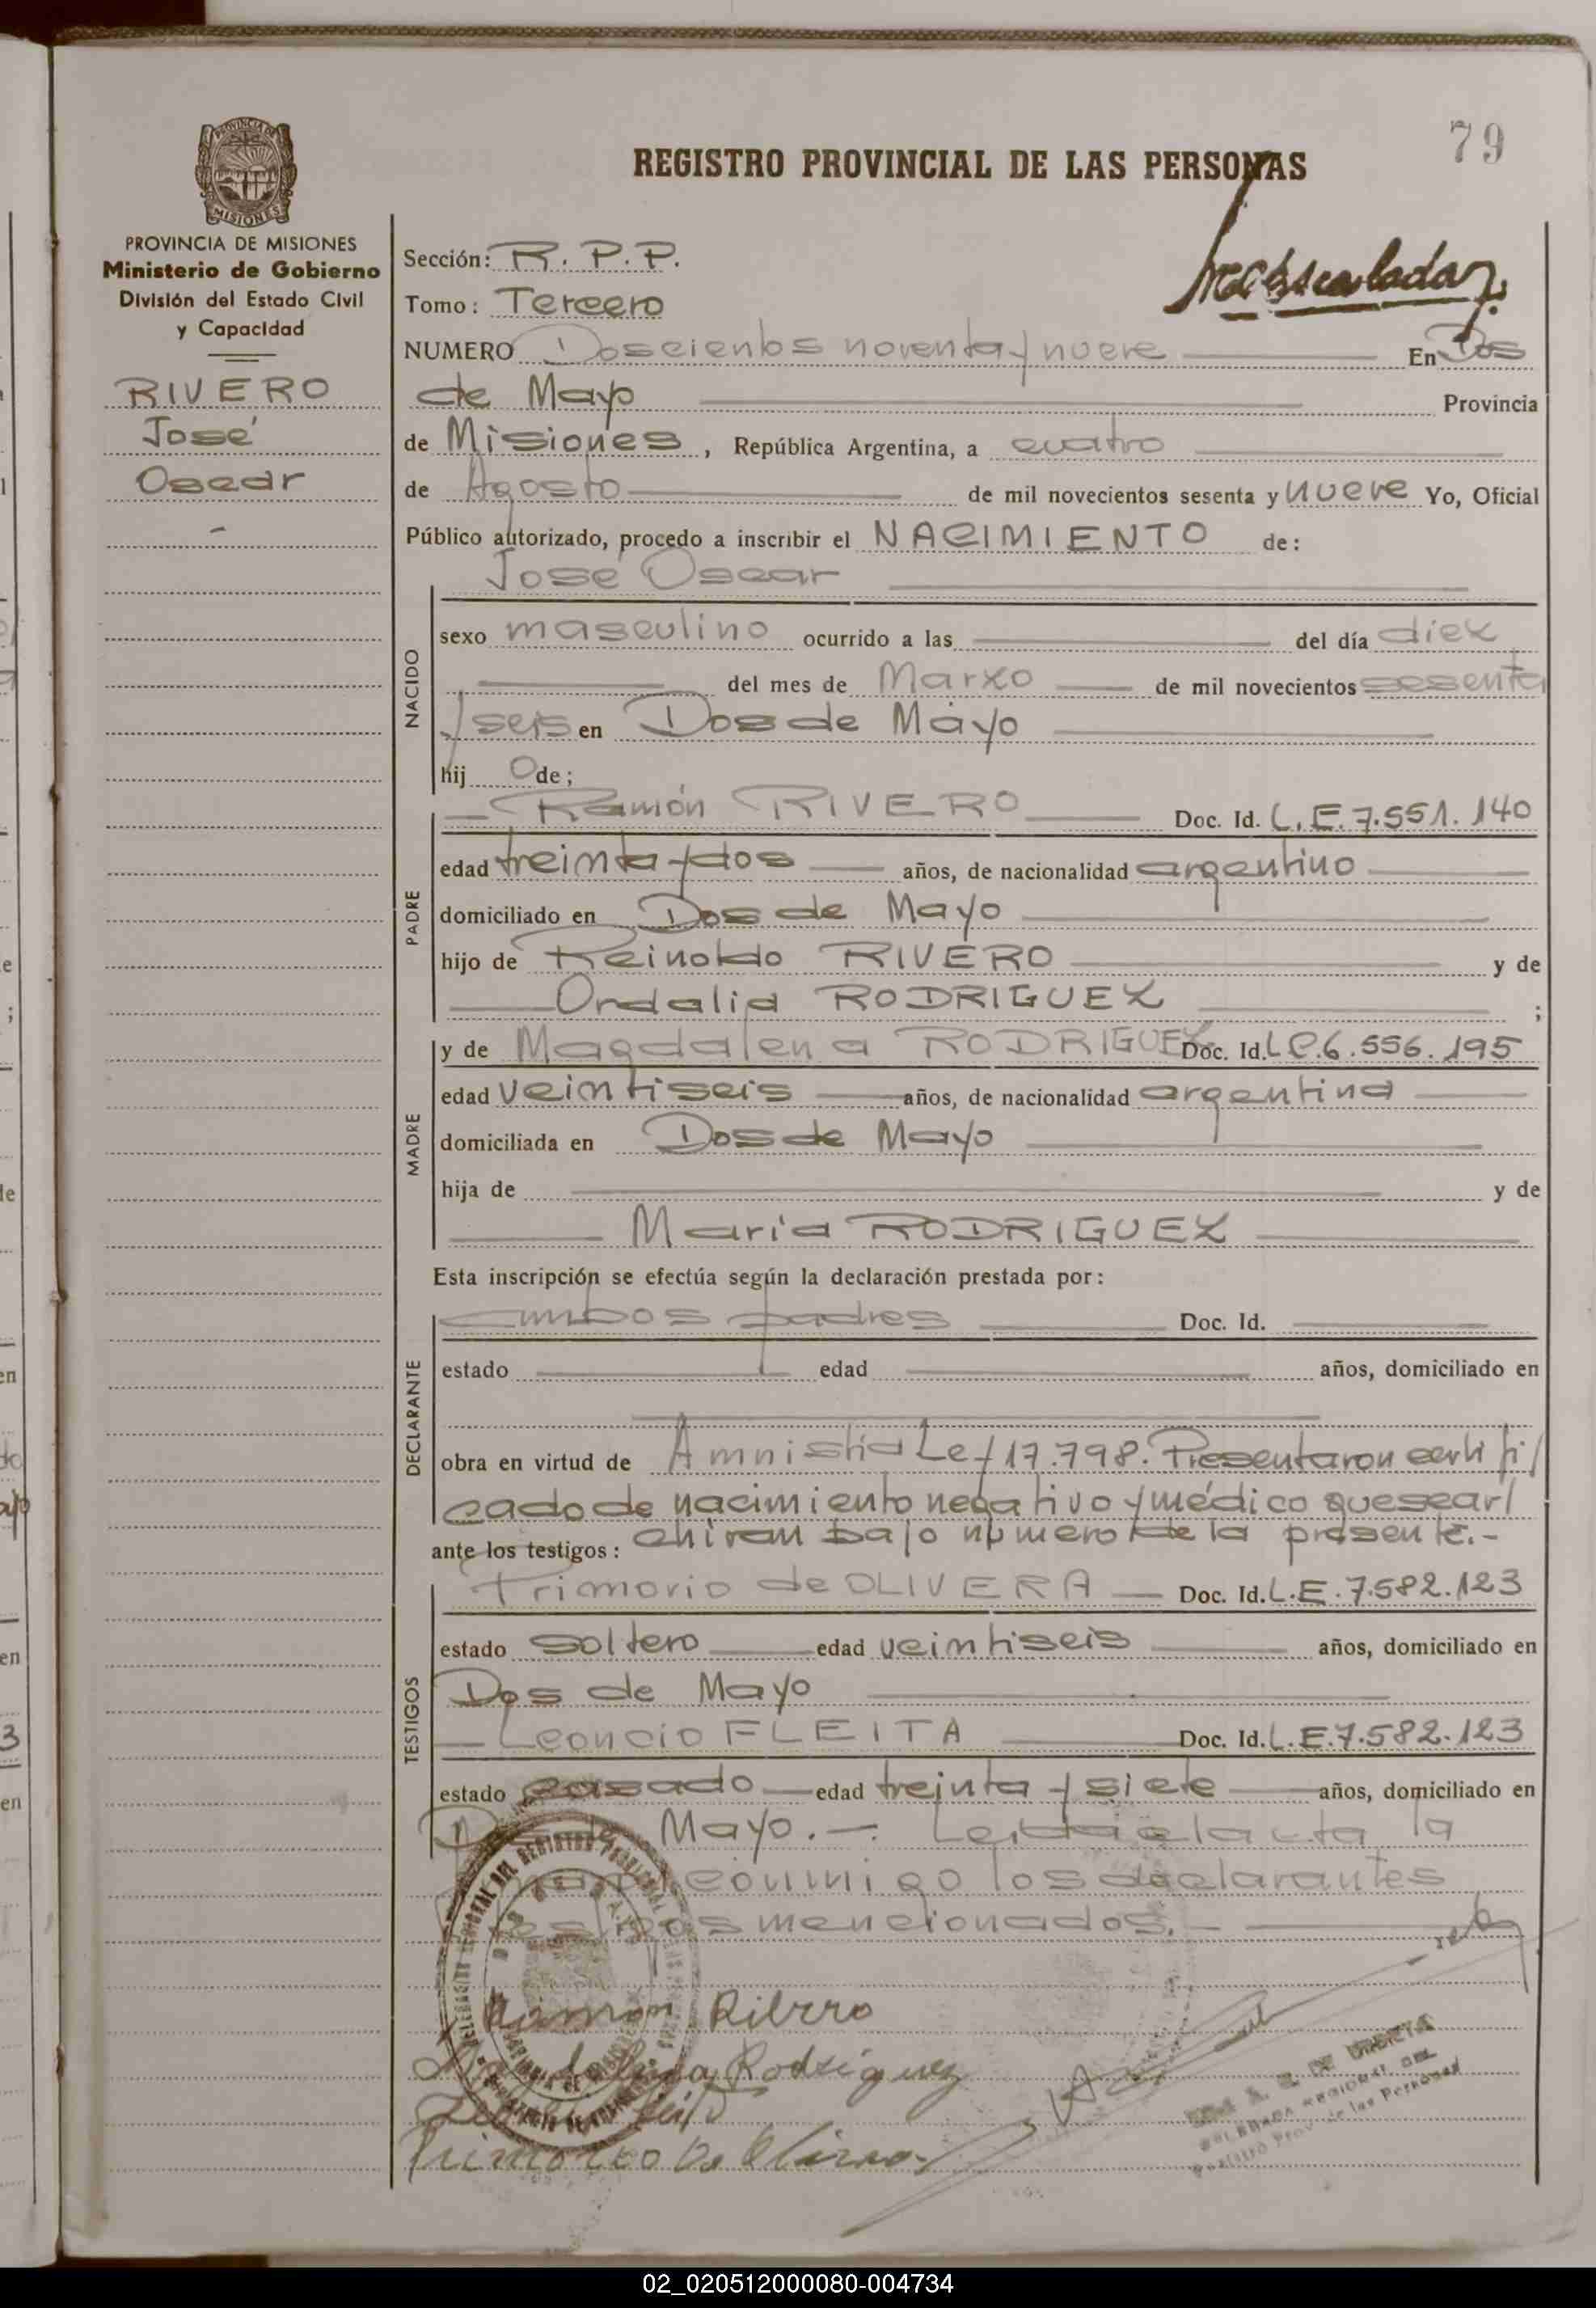 79
REGISTRO PROVINCIAL DE LAS PERSONAS
PROVINCIA DE MISIONES
Ministerio de Gobierno
División del Estado Civil
y Capacidad
RIVERO
José
Oscar
Sección: R. P. P.
Tomo: Tercero
NUMERO Doscientos noventa y nueve En Dos
de Mayo Provincia
de Misiones, República Argentina, a cuatro
de Agosto de mil novecientos sesenta y nueve Yo, Oficial
Público autorizado, procedo a inscribir el NACIMIENTO de:
José Oscar
NACIDO
sexo masculino ocurrido a las del día diez
del mes de Marzo de mil novecientos sesenta
y seis en Dos de Mayo
hijo de;
PADRE
Ramón RIVERO Doc. Id. L. E. 7.551.140
edad treinta y dos años, de nacionalidad argentino
domiciliado en Dos de Mayo
hijo de Reinoldo RIVERO y de
Ordalia RODRIGUEZ ;
MADRE
y de Magdalena RODRIGUEZ Doc. Id. LC.6.556.195
edad veintiseis años, de nacionalidad argentina
domiciliada en Dos de Mayo
hija de y de
Maria RODRIGUEZ
Esta inscripción se efectúa según la declaración prestada por:
DECLARANTE
ambos padres Doc. Id.
estado edad años, domiciliado en
obra en virtud de Amnistia Ley 17.798. Presentaron certifi/
cado de nacimiento negativo y médico que se ar/
chivan bajo número de la presente.-
ante los testigos:
TESTIGOS
de OLIVERA Doc. Id. L.E. 7.582.123
estado soltero edad veintiseis años, domiciliado en
Dos de Mayo
Leoncio FLEITA Doc. Id. L.E.7.582.123
estado casado edad treinta y siete años, domiciliado en
Mayo.-. Leida el acta la
conmigo los declarantes
mencionados.-
Ramon Riberro
Rodriguez
02_020512000080-004734